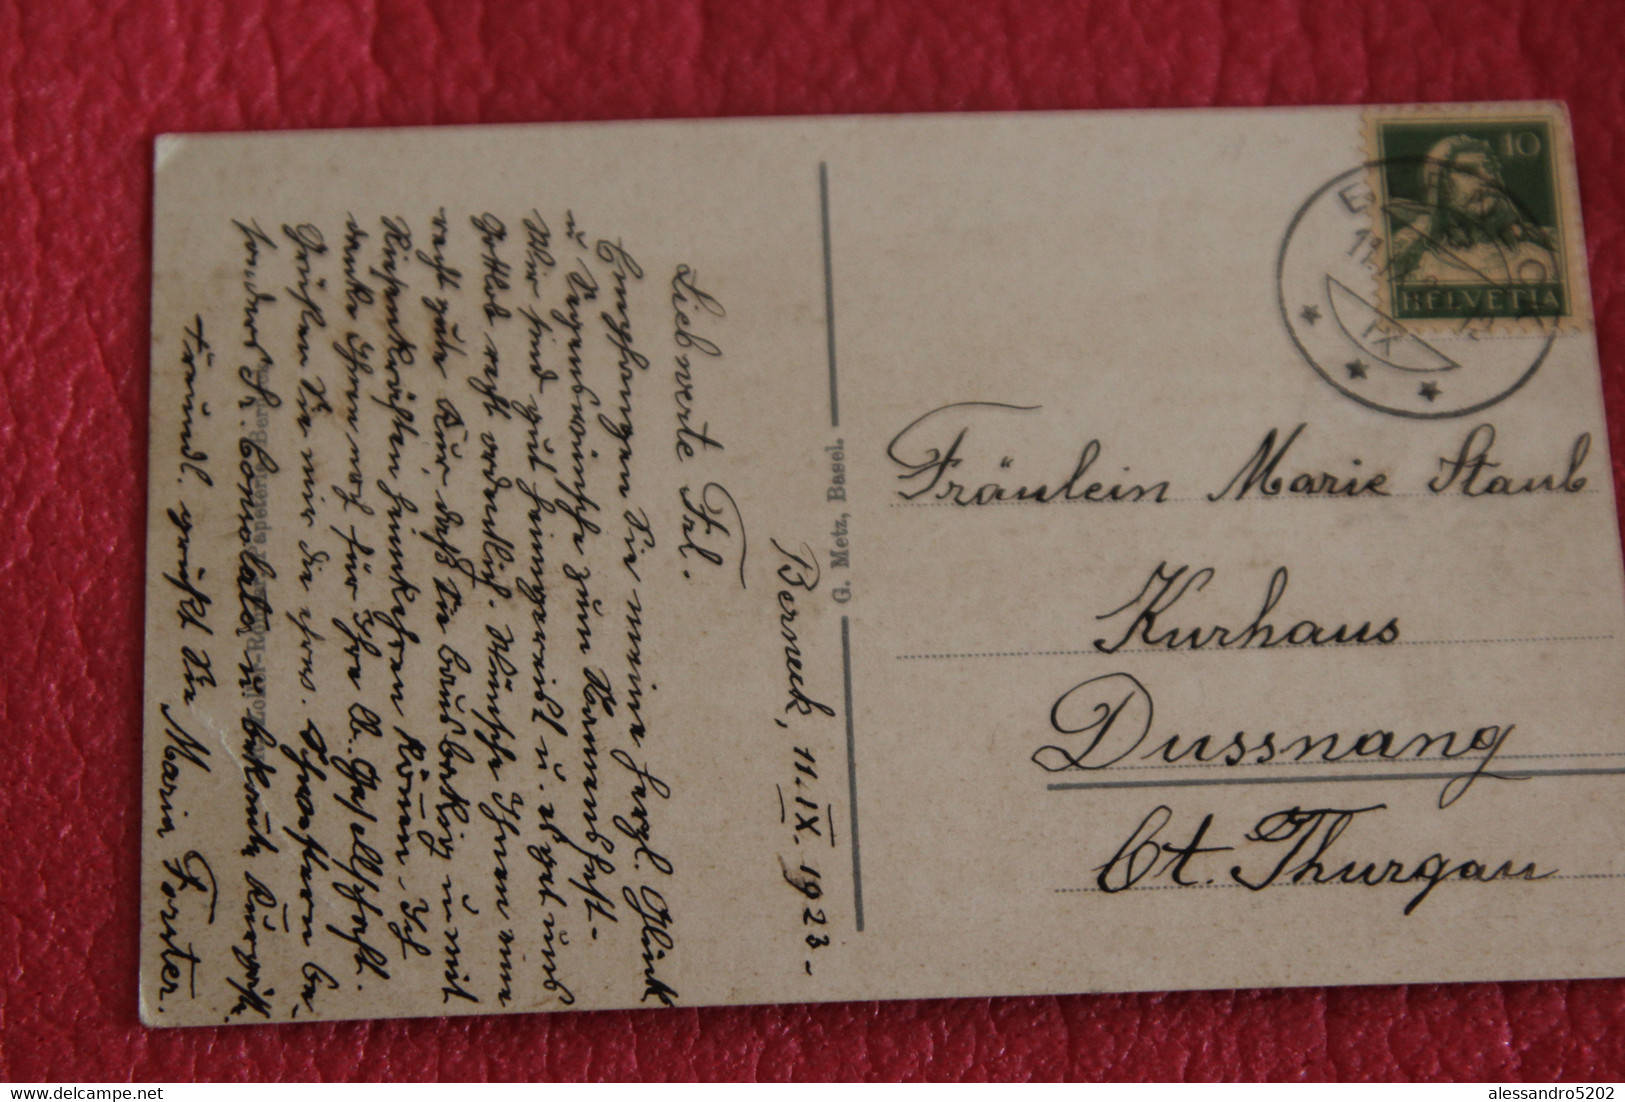 Berneck, 11. IX. 1923.-
Liebwerte Frl.
Empfangen Sie meine herzl. Glück
u. Segenswünsche zum Namensfest-
Wir sind gut heimgereist u. es geht uns
Gottlob recht ordentlich. Wünsche Ihnen nun
recht gute Kur, daß Sie bald u. mit
Riesenkräften heimkehren können. Ich
danke Ihnen noch für Ihre lb. Gesellschaft.
Grüßen Sie mir die ehrw. Schwestern be-
sonders
Freundl. grüßt Sie Maria Forster.
G. Metz, Basel.
Papeterie, Berneck
10
HELVETIA
IX
Fräulein Marie Staub
Kurhaus
Dussnang
Ct. Thurgau
alessandro5202